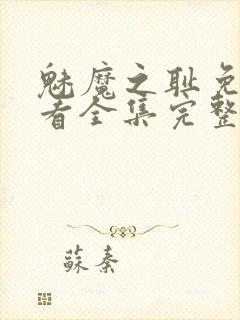 魅魔之耻免
看全集完整
蘇秦